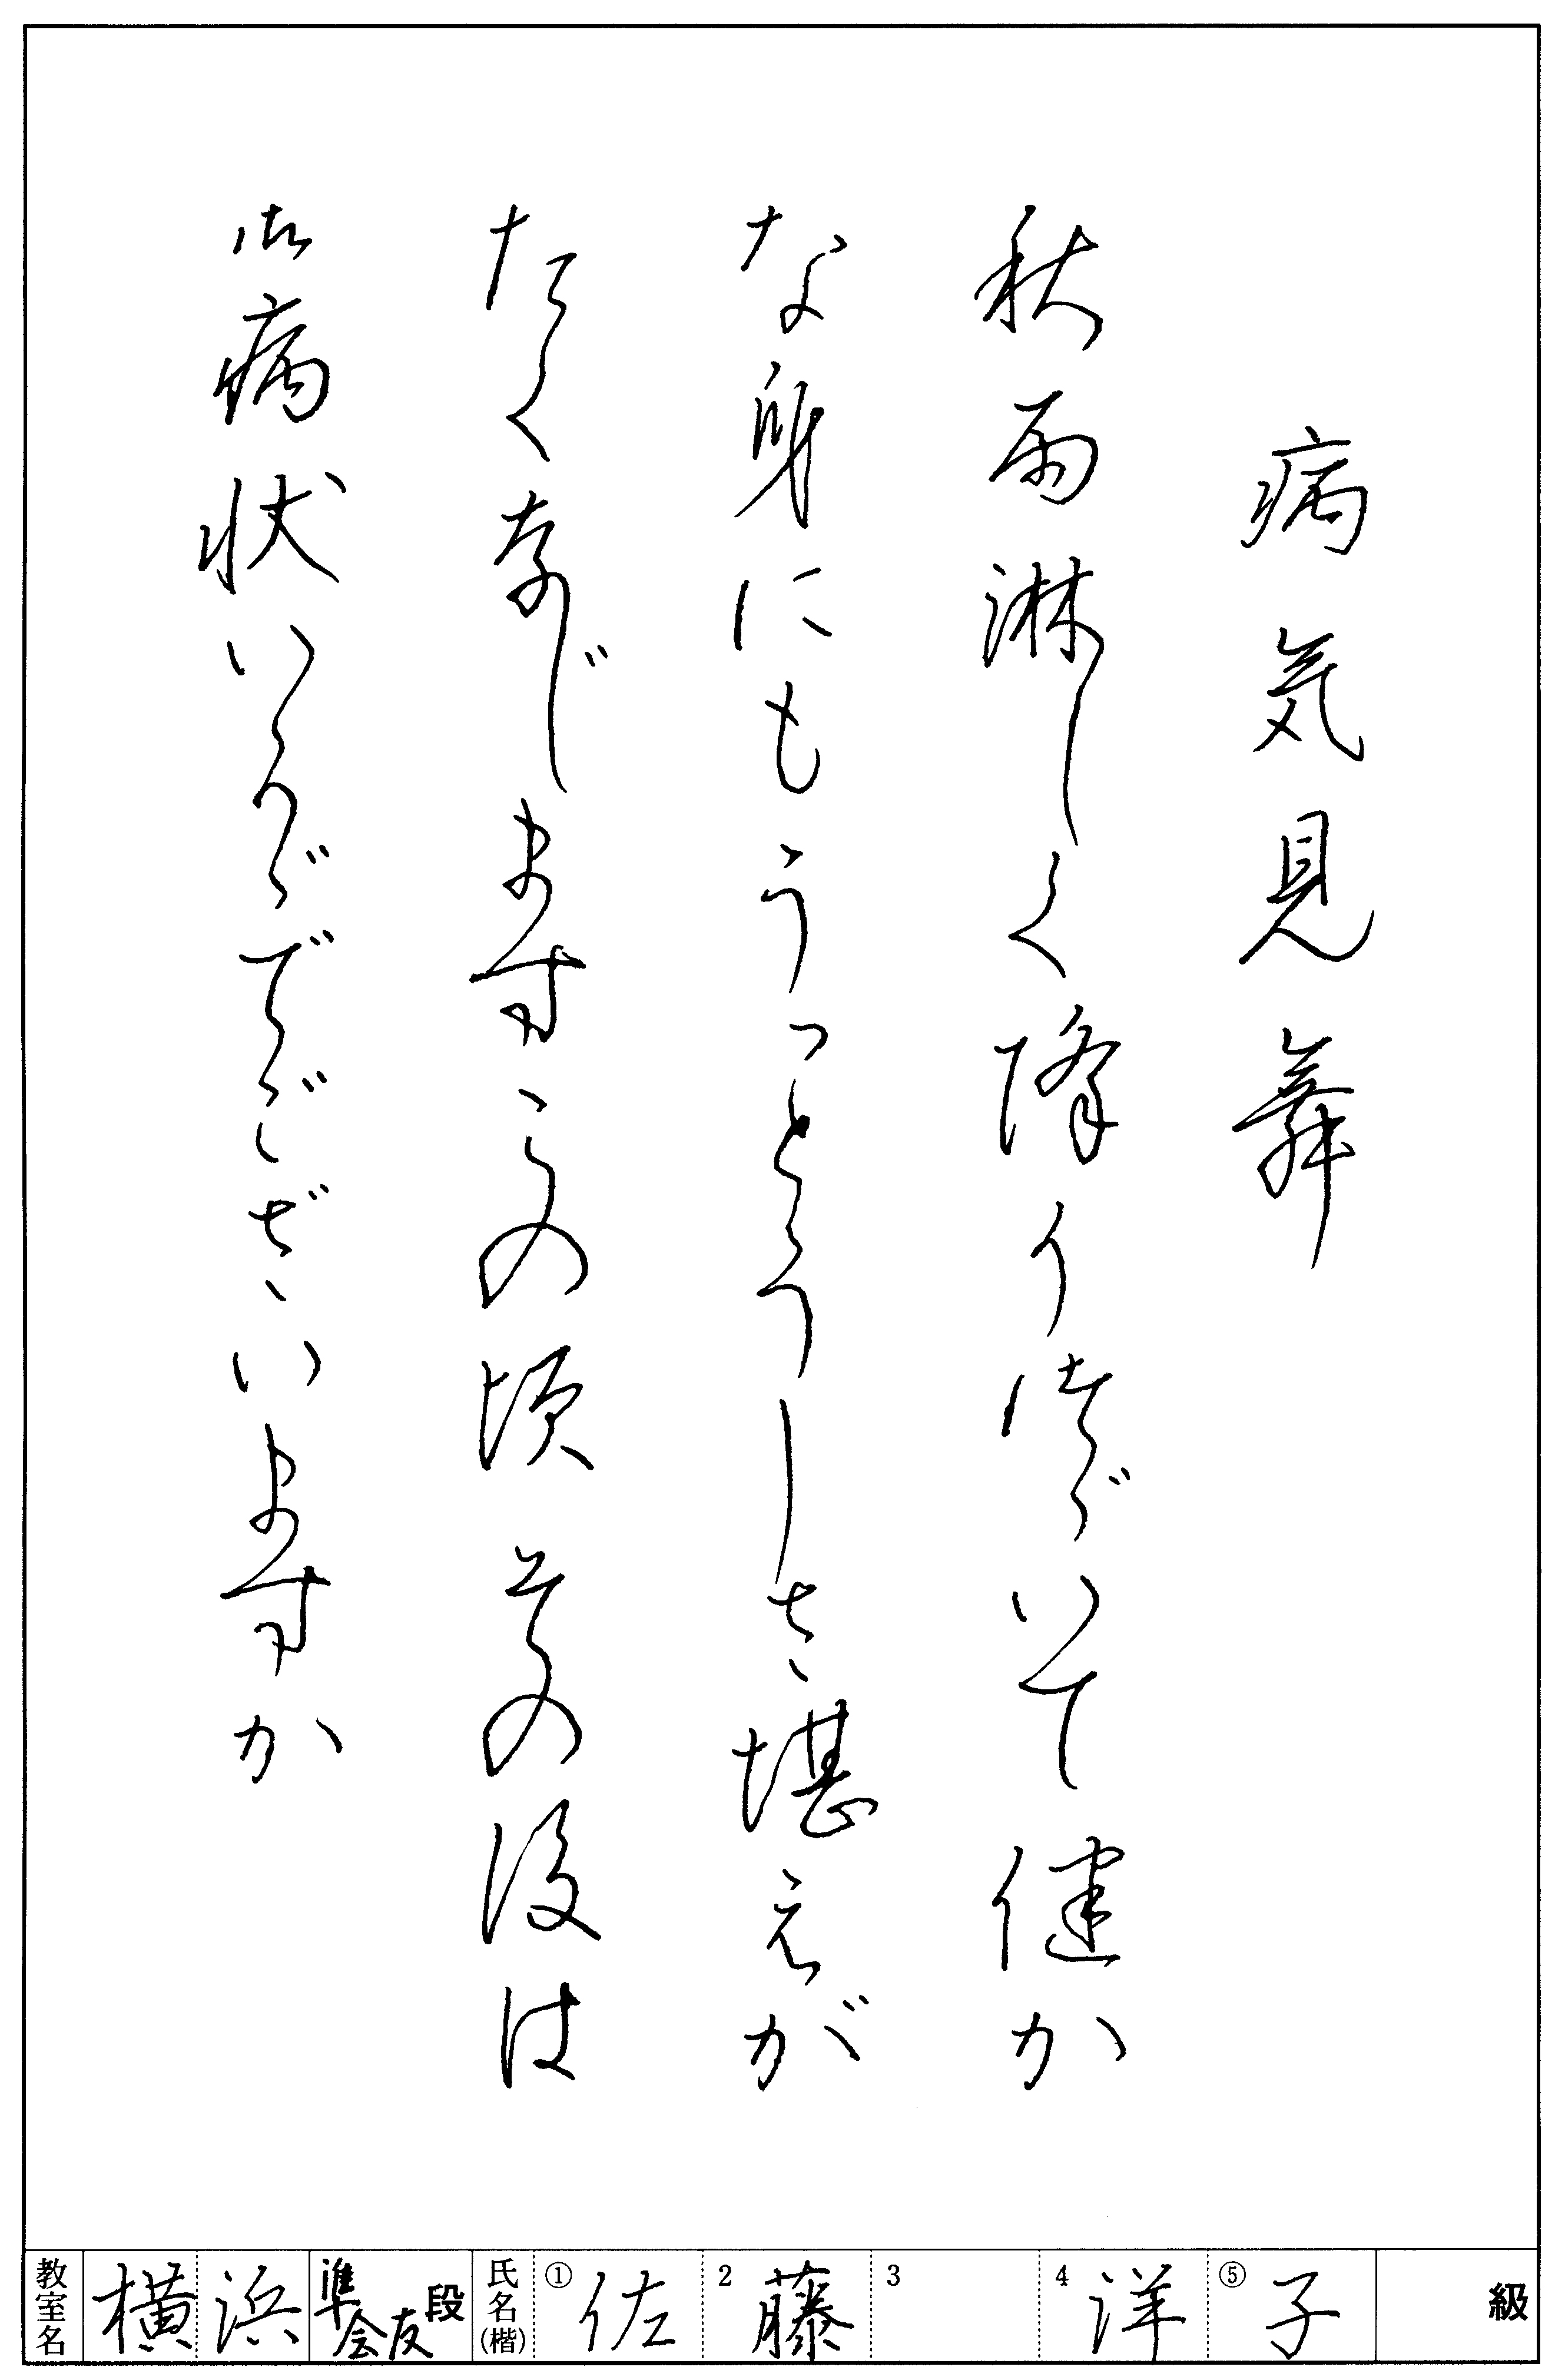 病気見舞
秋雨淋しく降り続いて健か
な身にもうっとうしさ堪えが
たく存じますこの頃その後は
御病状いかゞでございますか
教室名 横浜 準会友 段 氏名(楷) ① 佐 2 藤 3 4 洋 ⑤ 子 級